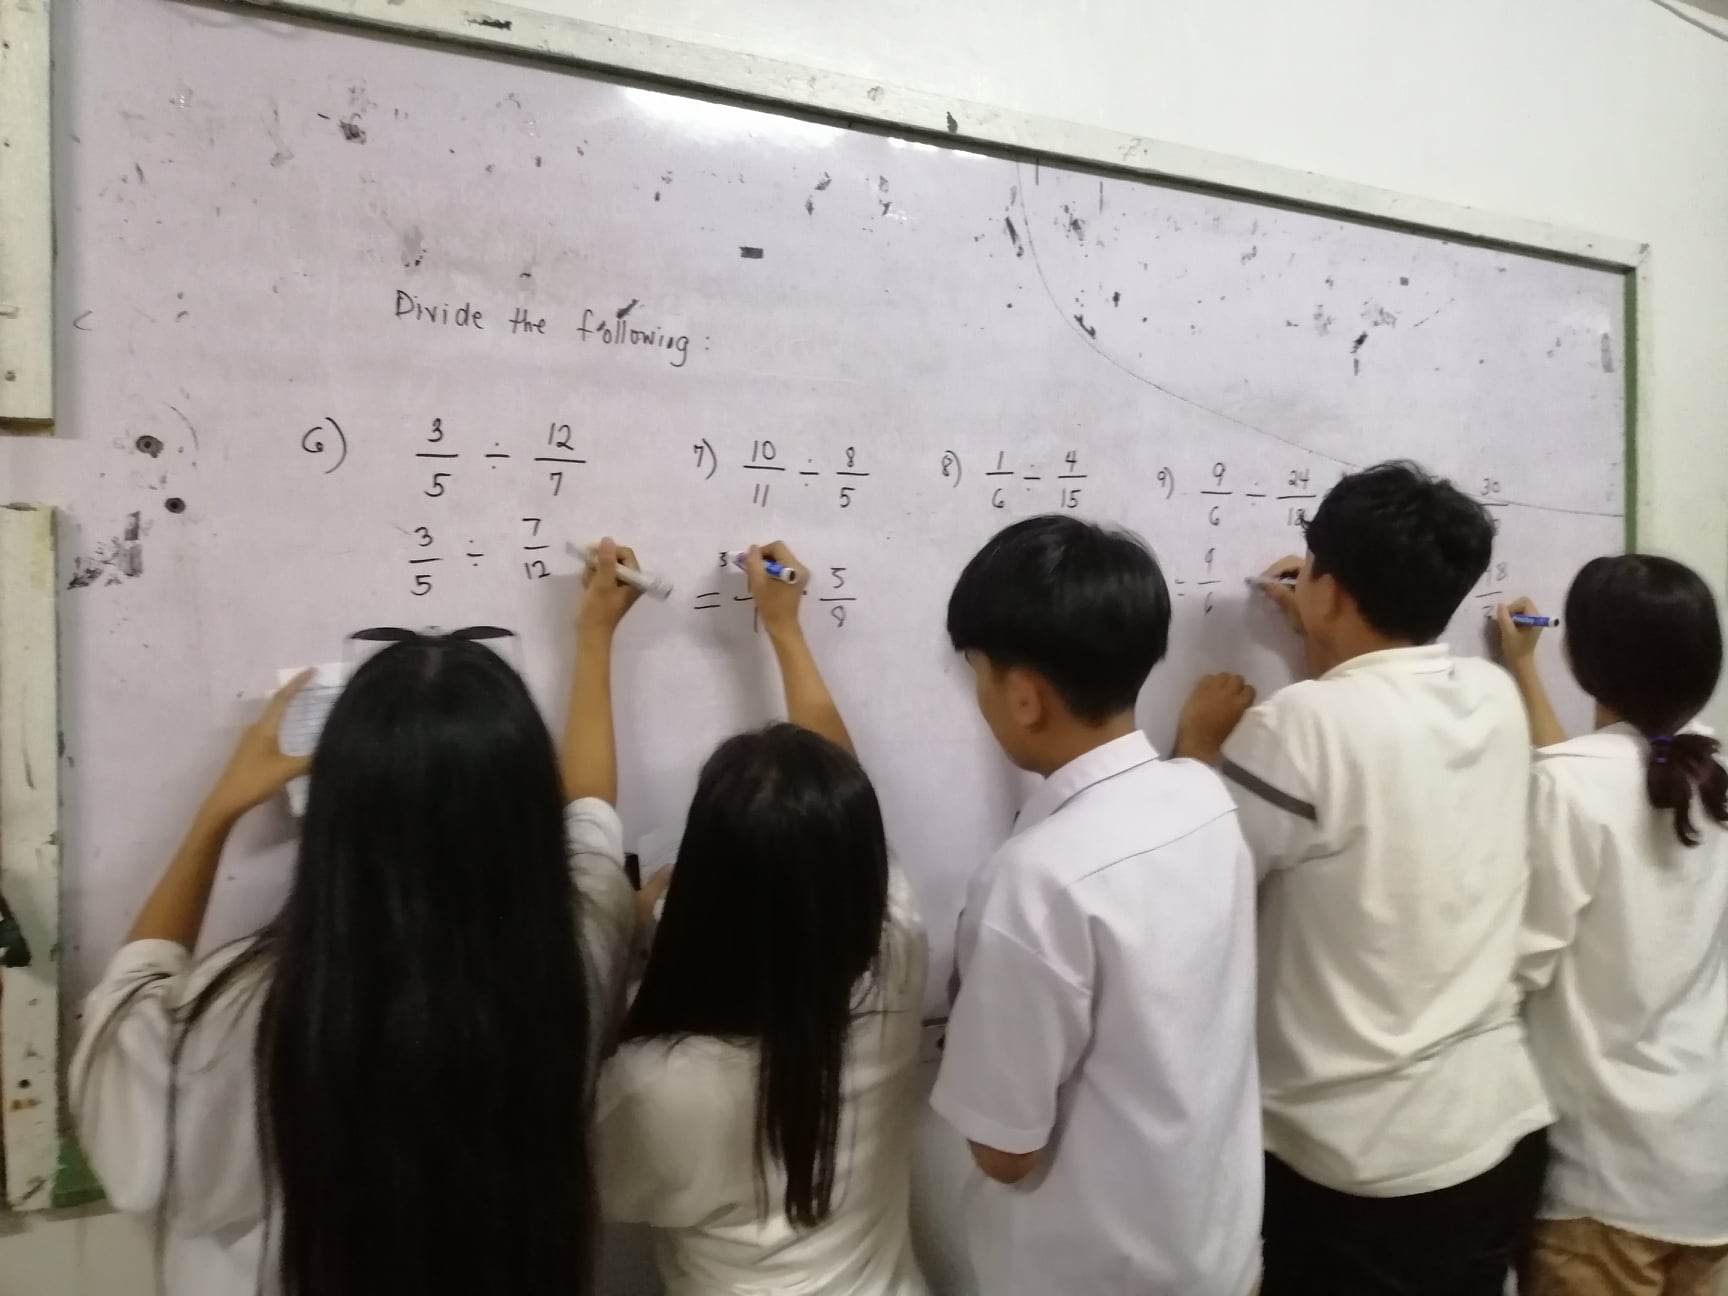 Divide the following:
6) 3/5 ÷ 12/7
3/5 ÷ 7/12
7) 10/11 ÷ 8/5
= 5/8
8) 1/6 ÷ 4/15
9) 9/6 ÷ 24/18
÷ 9/6
30